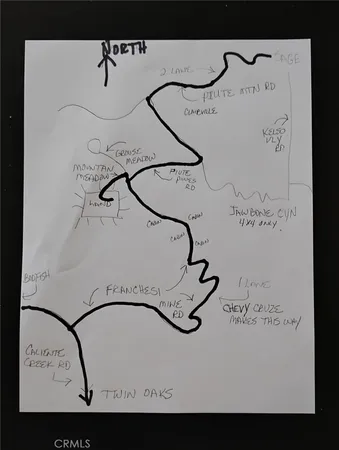 NORTH
SAGE
2 LANE
PIUTE MTN RD
CLARAVILLE
KELSO
VLY
RD
GROUSE
MEADOW
MOUNTAIN
MEADOW
PIUTE
PINES
RD
LAND
CABIN
CABIN
CABIN
CABIN
JAWBONE CYN
4X4 ONLY.
BIGFISH
FRANCHESI
MINE
RD
1 LANE
CHEVY CRUZE
MAKES THIS WAY
CALIENTE
CREEK RD
TWIN OAKS
CRMLS